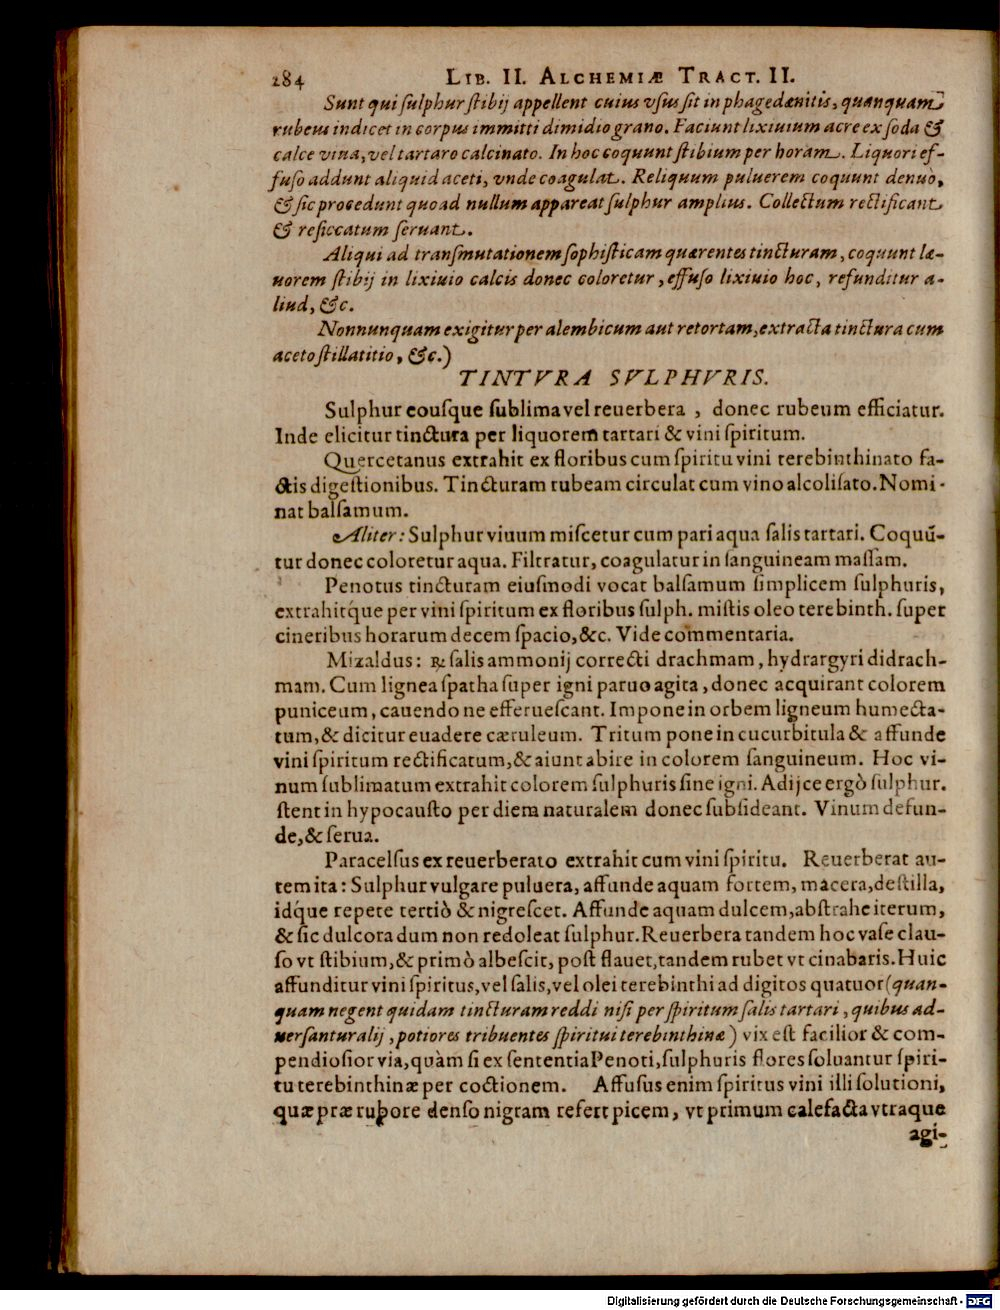 284 LIB. II. ALCHEMIÆ TRACT. II.
Sunt qui ſulphur ſtibij appellent cuius vſus ſit in phagedænitis, quanquam
rubeus indicet in corpus immitti dimidio grano. Faciunt lixiuium acre ex ſoda &
calce viua, vel tartaro calcinato. In hoc coquunt ſtibium per horam. Liquori ef-
fuſo addunt aliquid aceti, vnde coagulat. Reliquum puluerem coquunt denuò,
& ſic procedunt quoad nullum appareat ſulphur amplius. Collectum rectificant
& reſiccatum ſeruant.
Aliqui ad tranſmutationem ſophiſticam quærentes tincturam, coquunt læ-
uorem ſtibij in lixiuio calcis donec coloretur, effuſo lixiuio hoc, refunditur a-
liud, &c.
Nonnunquam exigitur per alembicum aut retortam, extracta tinctura cum
aceto ſtillatitio, &c.)
TINTVRA SVLPHVRIS.
Sulphur eouſque ſublima vel reuerbera , donec rubeum efficiatur.
Inde elicitur tinctura per liquorem tartari & vini ſpiritum.
Quercetanus extrahit ex floribus cum ſpiritu vini terebinthinato fa-
ctis digeſtionibus. Tincturam rubeam circulat cum vino alcoliſato. Nomi-
nat balſamum.
Aliter: Sulphur viuum miſcetur cum pari aqua ſalis tartari. Coquũ-
tur donec coloretur aqua. Filtratur, coagulatur in ſanguineam maſſam.
Penotus tincturam eiuſmodi vocat balſamum ſimplicem ſulphuris,
extrahitq́ue per vini ſpiritum ex floribus ſulph. miſtis oleo terebinth. ſuper
cineribus horarum decem ſpacio, &c. Vide commentaria.
Mizaldus: ℞ ſalis ammonij correcti drachmam, hydrargyri didrach-
mam. Cum lignea ſpatha ſuper igni paruo agita, donec acquirant colorem
puniceum, cauendo ne efferueſcant. Impone in orbem ligneum humecta-
tum, & dicitur euadere cæruleum. Tritum pone in cucurbitula & affunde
vini ſpiritum rectificatum, & aiunt abire in colorem ſanguineum. Hoc vi-
num ſublimatum extrahit colorem ſulphuris ſine igni. Adijce ergò ſulphur.
ſtent in hypocauſto per diem naturalem donec ſubſideant. Vinum defun-
de, & ſerua.
Paracelſus ex reuerberato extrahit cum vini ſpiritu. Reuerberat au-
tem ita: Sulphur vulgare puluera, affunde aquam fortem, macera, deſtilla,
idq́ue repete tertiò & nigreſcet. Affunde aquam dulcem, abſtrahe iterum,
& ſic dulcora dum non redoleat ſulphur. Reuerbera tandem hoc vaſe clau-
ſo vt ſtibium, & primò albeſcit, poſt flauet, tandem rubet vt cinabaris. Huic
affunditur vini ſpiritus, vel ſalis, vel olei terebinthi ad digitos quatuor (quan-
quam negent quidam tincturam reddi niſi per ſpiritum ſalis tartari, quibus ad-
uerſantur alij, potiores tribuentes ſpiritui terebinthinæ) vix eſt facilior & com-
pendioſior via, quàm ſi ex ſententia Penoti, ſulphuris flores ſoluantur ſpiri-
tu terebinthinæ per coctionem. Affuſus enim ſpiritus vini illi ſolutioni,
quæ præ rubore denſo nigram refert picem, vt primum calefacta vtraque
agi-
Digitalisierung gefördert durch die Deutsche Forschungsgemeinschaft - DFG